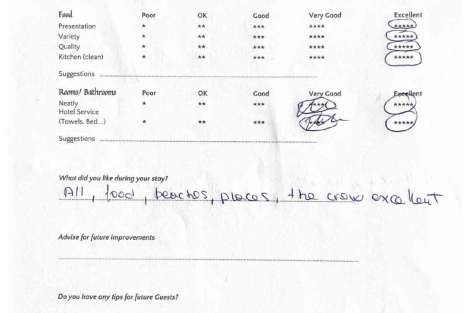 Food Poor OK Good Very Good Excellent
Presentation * ** *** **** *****
Variety * ** *** **** *****
Quality * ** *** **** *****
Kitchen (clean) * ** *** **** *****
Suggestions
Rooms/ Bathrooms Poor OK Good Very Good Excellent
Neatly * ** *** **** *****
Hotel Service
(Towels, Bed...) * ** *** *****
Suggestions
What did you like during your stay?
All, food, beaches, places, the crew excellent
Advise for future improvements
Do you have any tips for future Guests?